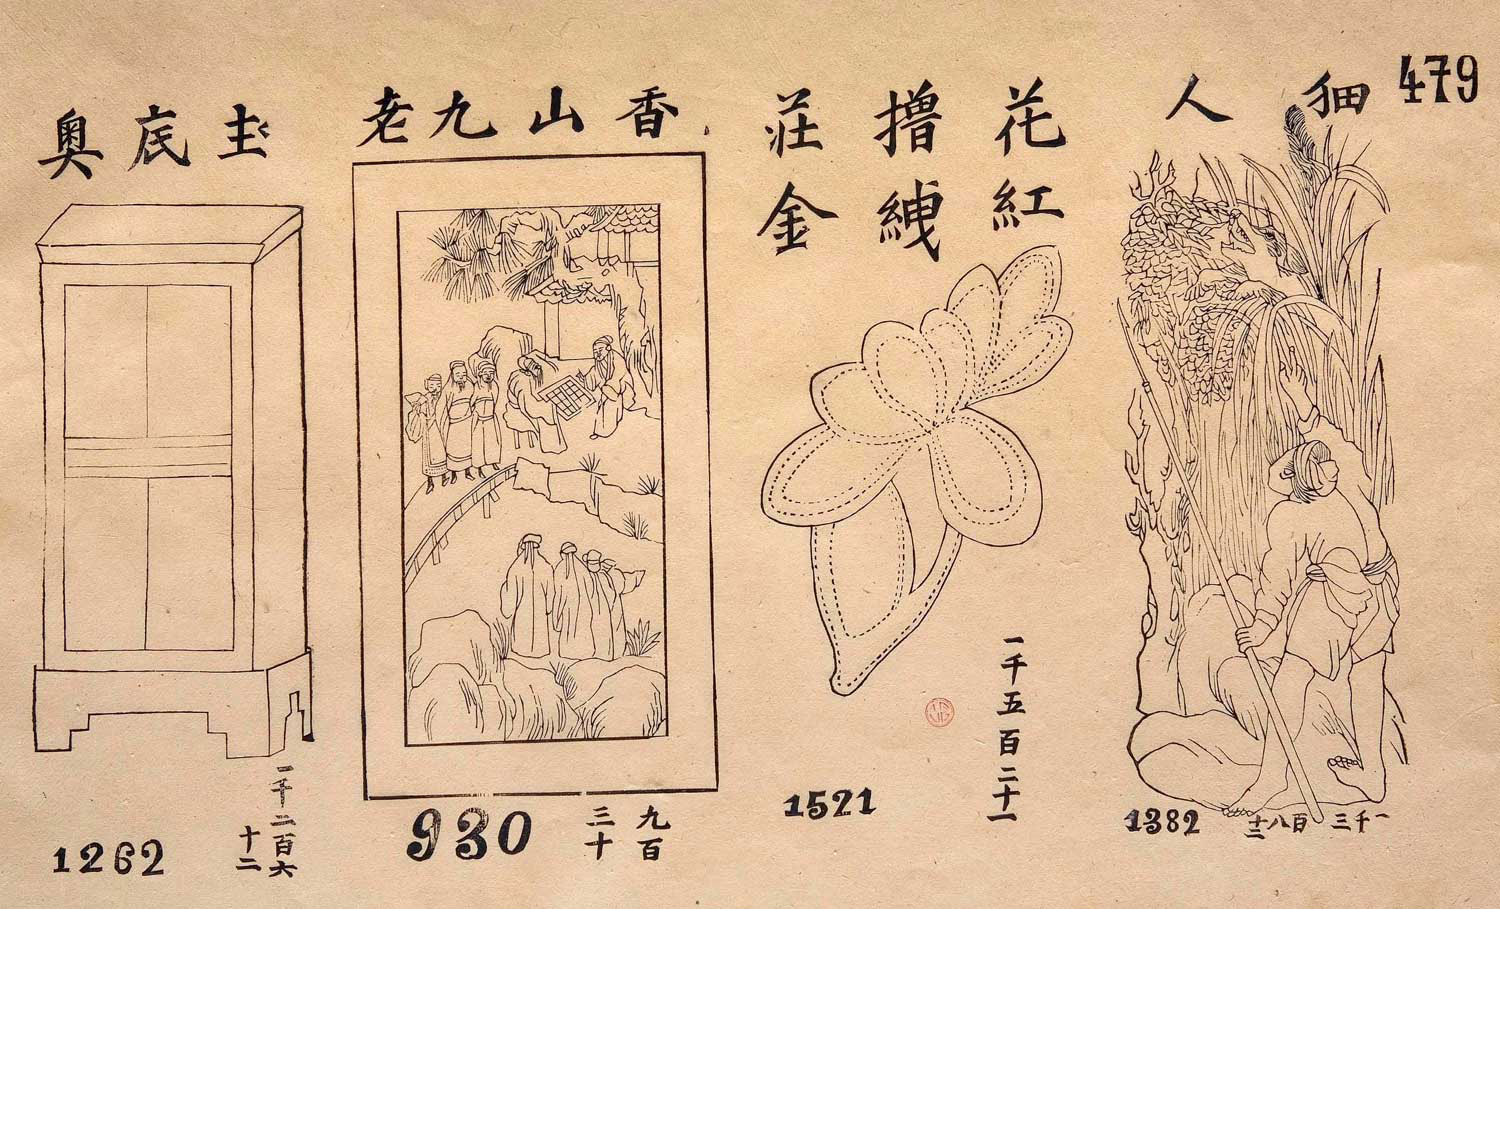 479
人
一千三百八十二
1382
花紅
擼絏
莊金
一千五百二十一
1521
香山九老
九百
三十
930
底奥
一千二百六
十二
1262